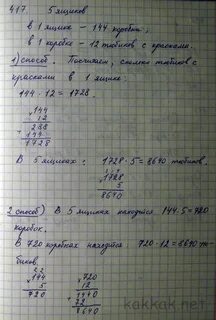 417. 5 ящиков
в 1 ящике - 144 коробки;
в 1 коробке - 12 тюбиков с красками.
1) способ. Посчитаем, сколько тюбиков с
красками в 1 ящике.
144 · 12 = 1728.
× 144
12
288
+ 144
1728
В 5 ящиках: 1728 · 5 = 8640 тюбиков.
× 1728
5
8640
2 способ) В 5 ящиках находится 144 · 5 = 720
коробок.
В 720 коробках находится 720 · 12 = 8640 тю-
биков.
2 2
× 144
5
720
× 720
12
+ 1440
72
8640
kakkak.net